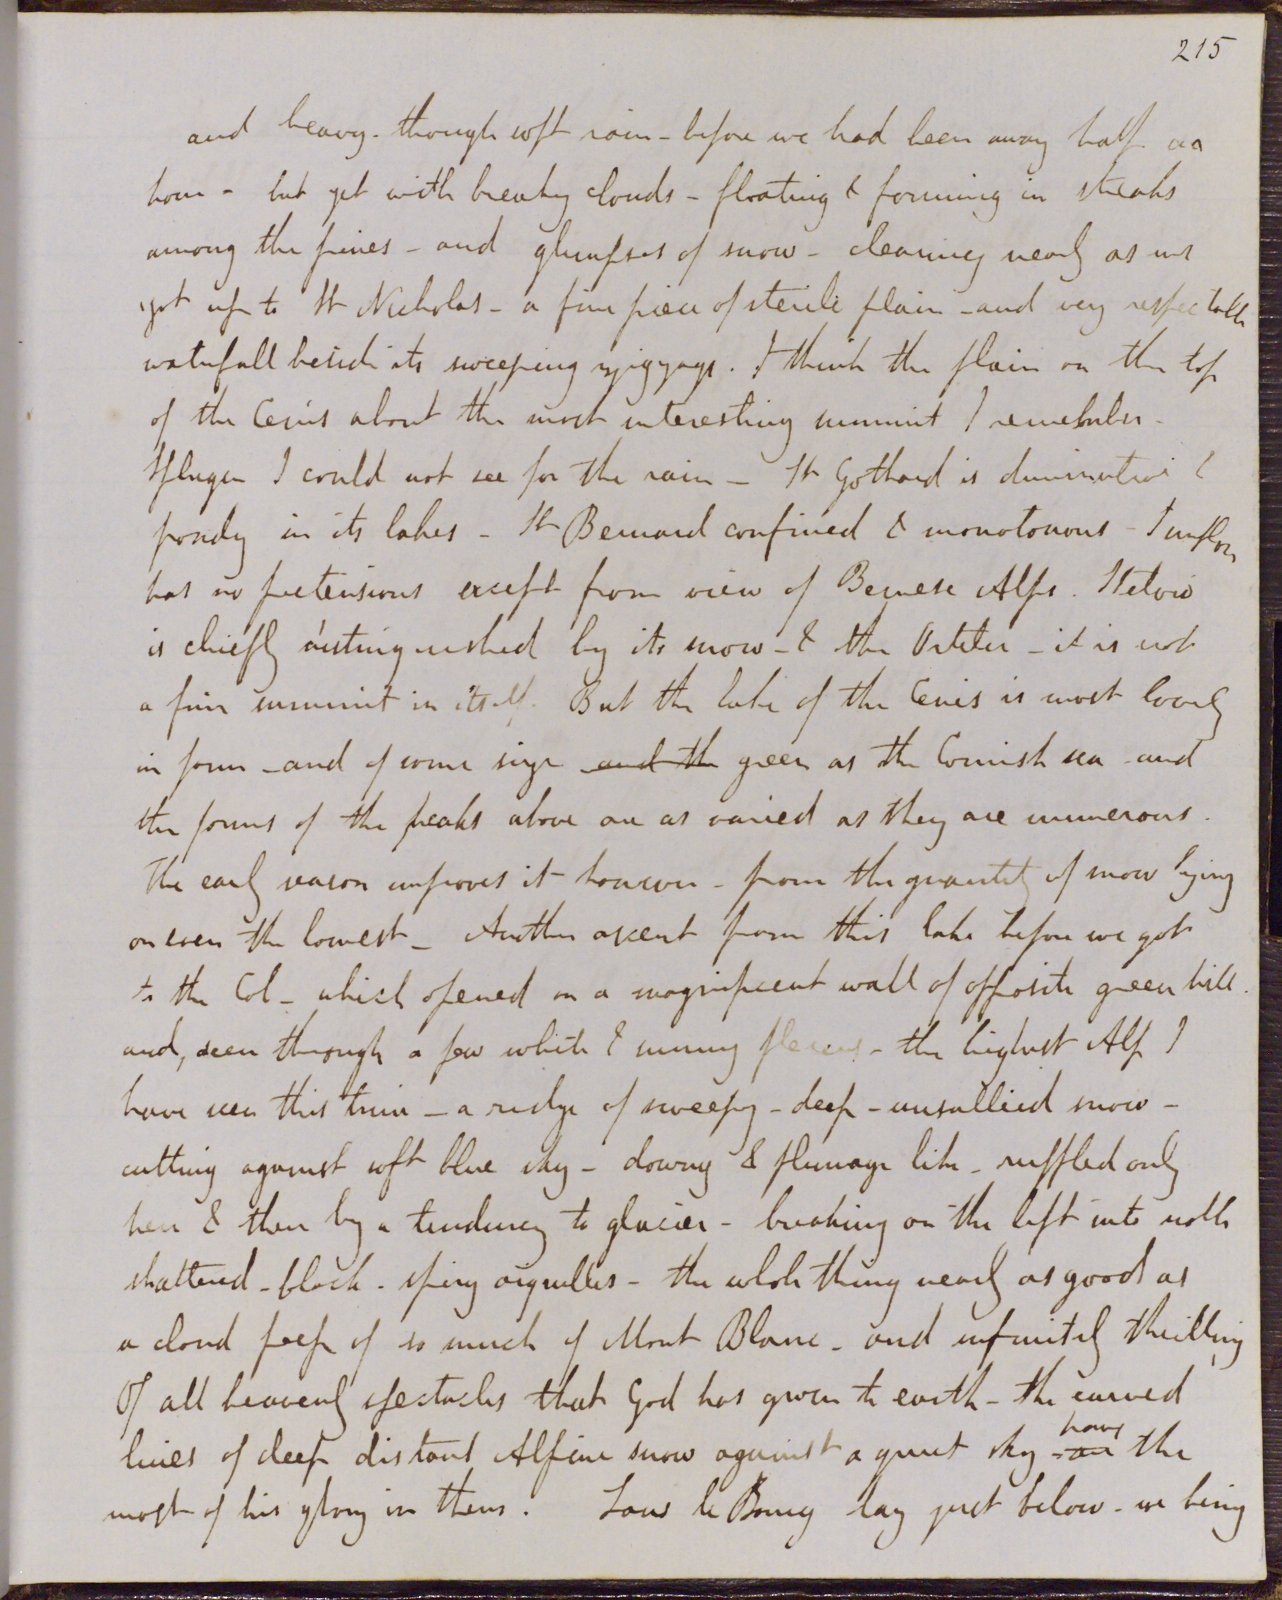 215
and heavy - though soft rain - before we had been away half an
hour - but yet with breaking clouds - floating & forming in streaks
among the pines - and glimpses of snow - clearing nearly as we
got up to St Nicholas - a fine piece of sterile plain - and very respectable
waterfall beside its sweeping zigzags. I think the plain on the top
of the Cenis about the most interesting summit I remember -
Splugen I could not see for the rain - St Gothard is diminutive &
pondy in its lakes - St Bernard confined & monotonous - Simplon
has no pretensions except from view of Bernese Alps. Stelvio
is chiefly distinguished by its snow - & the Ortler - it is not
a fine summit in itself. But the lake of the Cenis is most lovely
in form - and of some size and the green as the Cornish sea - and
the forms of the peaks above are as varied as they are numerous.
The early season improves it however - from the quantity of snow lying
on even the lowest - Another ascent from this lake before we got
to the Col - which opened on a magnificent wall of opposite green hill.
and, seen through a few white & sunny fleeces - the highest Alp I
have seen this time - a ridge of sweepg - deep - unsullied snow -
cutting against soft blue sky - downy & plumage like - ruffled only
here & there by a tendency to glacier - breaking on the left into noble
shattered - black - spiry aiguilles - the whole thing nearly as good as
a cloud peep of so much of Mont Blanc - and infinitely thrilling
Of all heavenly spectacles that God has given to earth - the curved
lines of deep distant Alpine snow against a quiet sky - are have the
most of his glory in them. Lans le Bourg lay just below - we being